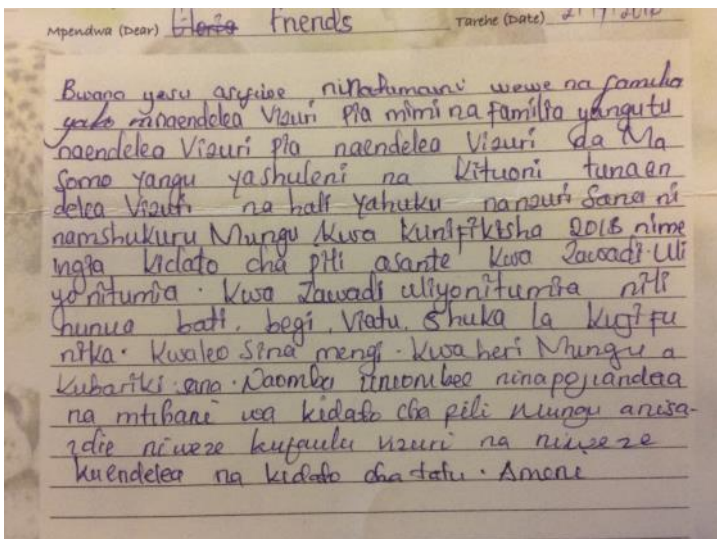 Mpendwa (Dear) Friends Tarehe (Date)
Bwana yesu asifiwe ninatumaini wewe na familia
yako mnaendelea Vizuri Pia mimi na familia yangu tu
naendelea Vizuri Pia naendelea Vizuri da Ma
Somo yangu yashuleni na Kituoni tunaen
delea Vizuri na hali yahuku nanzuri Sana ni
namshukuru Mungu Kwa Kunifikisha 2018 nime
ingia kidato cha pili asante Kwa Zawadi Uli
yonitumia. Kwa Zawadi uliyonitumia nili
nunua bati, begi, Viatu, Shuka la Kujifu
nika. Kwaleo Sina mengi. Kwa heri Mungu a
Kubariki sana. Naomba uniombee ninapojiandaa
na mtihani wa kidato cha pili Mungu anisa-
idie niweze kufaulu vizuri na niweze
kuendelea na kidato cha tatu. Ameni